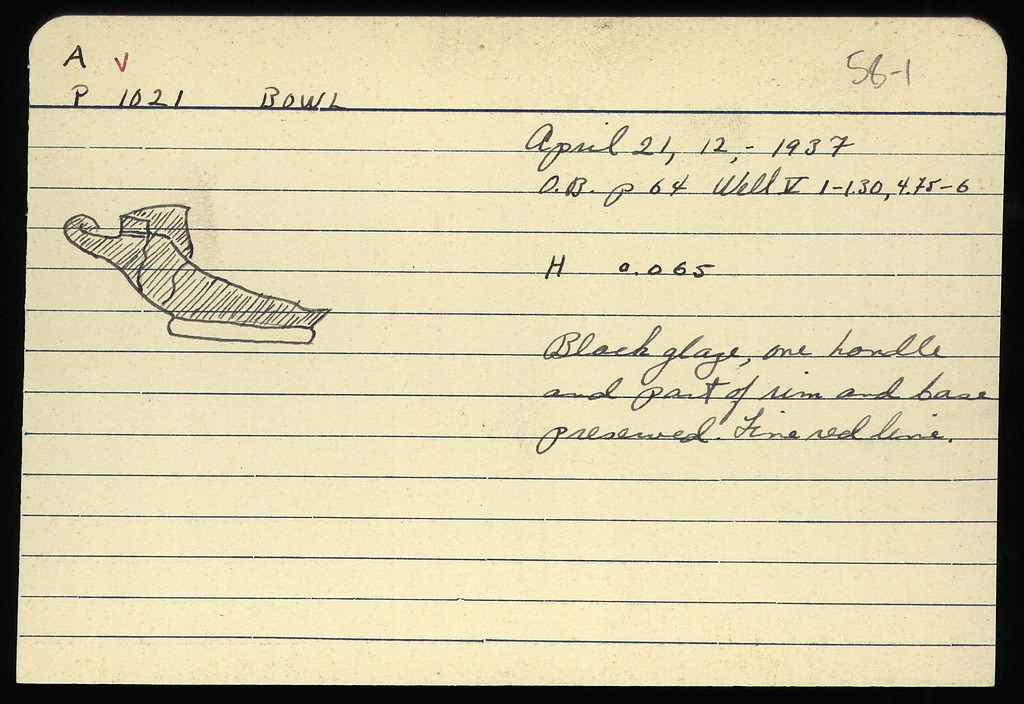 A V
58-1
P 1021 BOWL
April 21, 12, - 1937
O.B. p 64 Well V 1-1.30, 4.75-6
H 0.065
Black glaze, one handle
and part of rim and base
preserved. Fine red line.